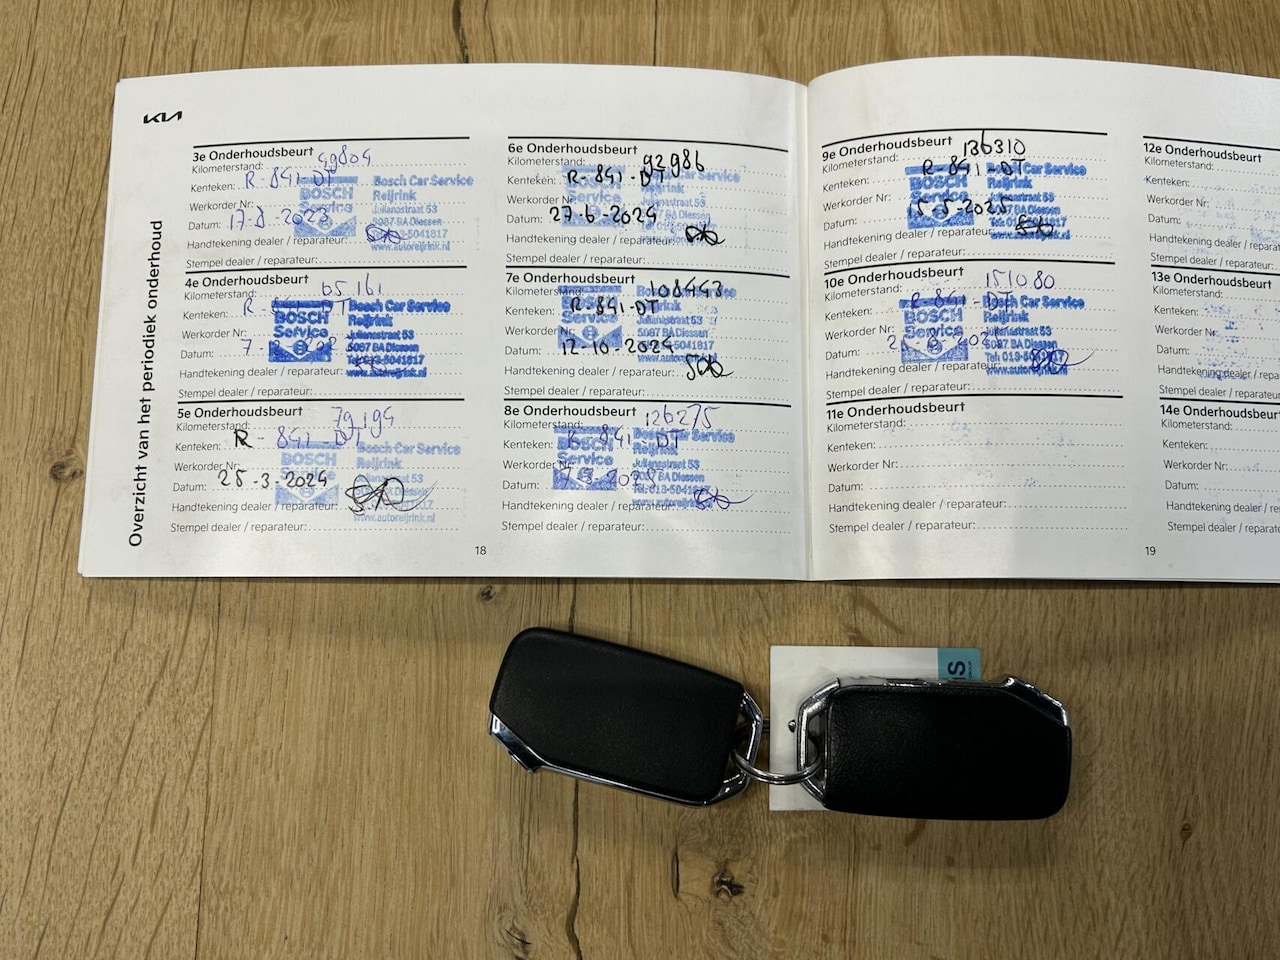 KIA
Overzicht van het periodiek onderhoud
3e Onderhoudsbeurt
Kilometerstand: 49804
Kenteken: R-841-DT
Werkorder Nr:
Datum: 17-8-2023
Handtekening dealer / reparateur:
Stempel dealer / reparateur:
BOSCH Service
Bosch Car Service
Reijrink
Julianastraat 53
5087 BA Diessen
Tel: 013-5041817
www.autoreijrink.nl
4e Onderhoudsbeurt
Kilometerstand: 65161
Kenteken: R- DT
Werkorder Nr:
Datum: 7-
Handtekening dealer / reparateur:
Stempel dealer / reparateur:
BOSCH Service
Bosch Car Service
Reijrink
Julianastraat 53
5087 BA Diessen
Tel: 013-5041817
www.autoreijrink.nl
5e Onderhoudsbeurt
Kilometerstand: 79194
Kenteken: R-841-DT
Werkorder Nr:
Datum: 25-3-2024
Handtekening dealer / reparateur:
Stempel dealer / reparateur:
BOSCH
Bosch Car Service
Reijrink
www.autoreijrink.nl
18
6e Onderhoudsbeurt
Kilometerstand: 92986
Kenteken: R-841-DT
Werkorder Nr:
Datum: 27-6-2024
Handtekening dealer / reparateur:
Stempel dealer / reparateur:
7e Onderhoudsbeurt
Kilometerstand: 108443
Kenteken: R-841-DT
Werkorder Nr:
Datum: 12-10-2024
Handtekening dealer / reparateur:
Stempel dealer / reparateur:
8e Onderhoudsbeurt
Kilometerstand: 126275
Kenteken: R-841-DT
Werkorder Nr:
Datum:
Handtekening dealer / reparateur:
Stempel dealer / reparateur:
BOSCH Service
Car Service
Reijrink
Julianastraat 53
5087 BA Diessen
9e Onderhoudsbeurt
Kilometerstand: 136310
Kenteken: R-841-DT
Werkorder Nr:
Datum: 15-5-2025
Handtekening dealer / reparateur:
Stempel dealer / reparateur:
BOSCH
Car Service
Reijrink
10e Onderhoudsbeurt
Kilometerstand: 151080
Kenteken: R-841-DT
Werkorder Nr:
Datum:
Handtekening dealer / reparateur:
Stempel dealer / reparateur:
BOSCH Service
Bosch Car Service
Reijrink
Julianastraat 53
5087 BA Diessen
Tel: 013-5041817
www.autoreijrink.nl
11e Onderhoudsbeurt
Kilometerstand:
Kenteken:
Werkorder Nr:
Datum:
Handtekening dealer / reparateur:
Stempel dealer / reparateur:
19
12e Onderhoudsbeurt
Kilometerstand:
Kenteken:
Werkorder Nr:
Datum:
Handtekening dealer / repara
Stempel dealer / reparateu
13e Onderhoudsbeurt
Kilometerstand:
Kenteken:
Werkorder Nr:
Datum:
Handtekening dealer / repara
Stempel dealer / reparateu
14e Onderhoudsbeurt
Kilometerstand:
Kenteken:
Werkorder Nr:
Datum:
Handtekening dealer / re
Stempel dealer / repara